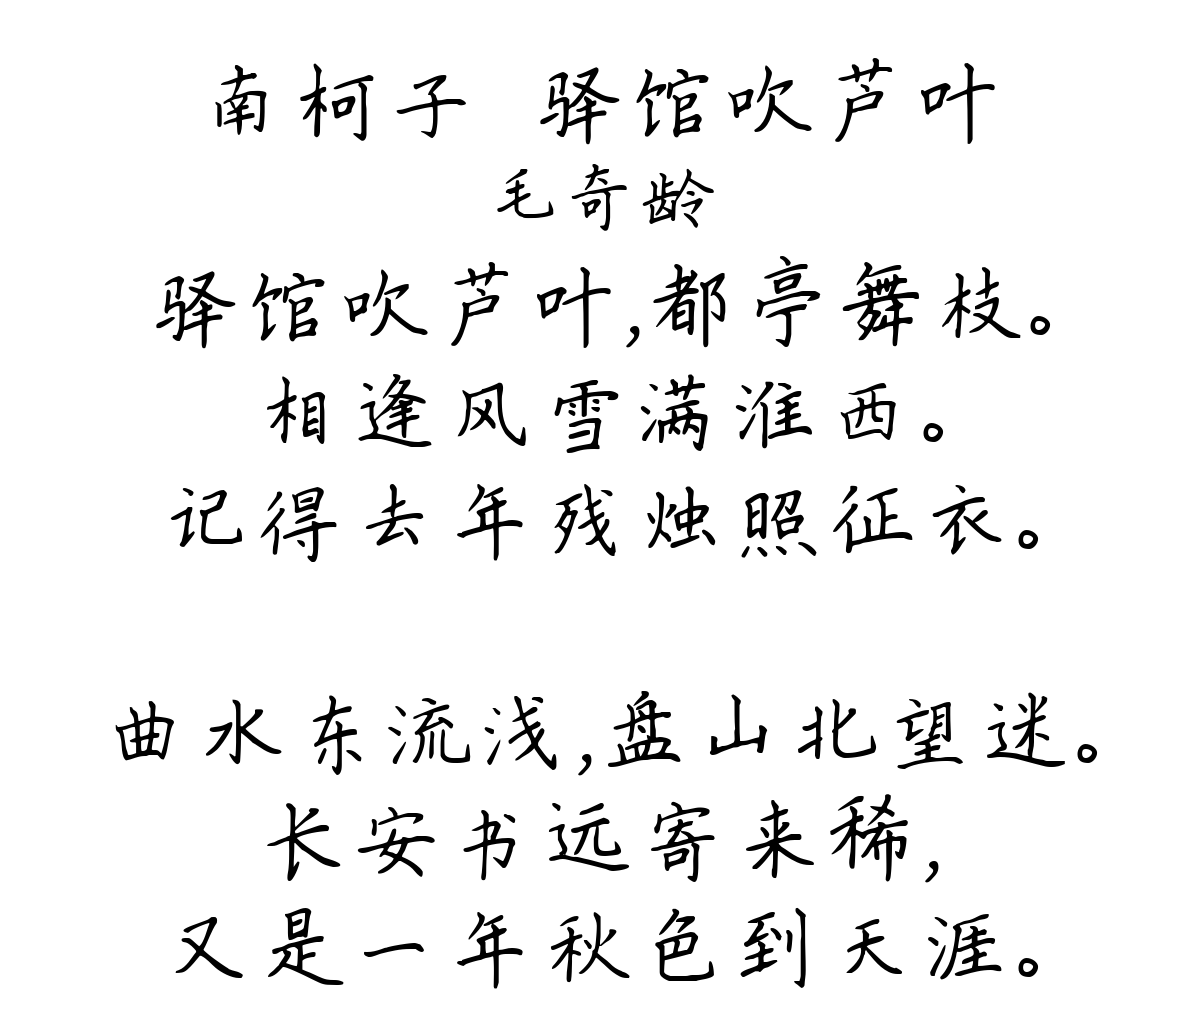 南柯子 驿馆吹芦叶
毛奇龄
驿馆吹芦叶,都亭舞枝。
相逢风雪满淮西。
记得去年残烛照征衣。
曲水东流浅,盘山北望迷。
长安书远寄来稀,
又是一年秋色到天涯。